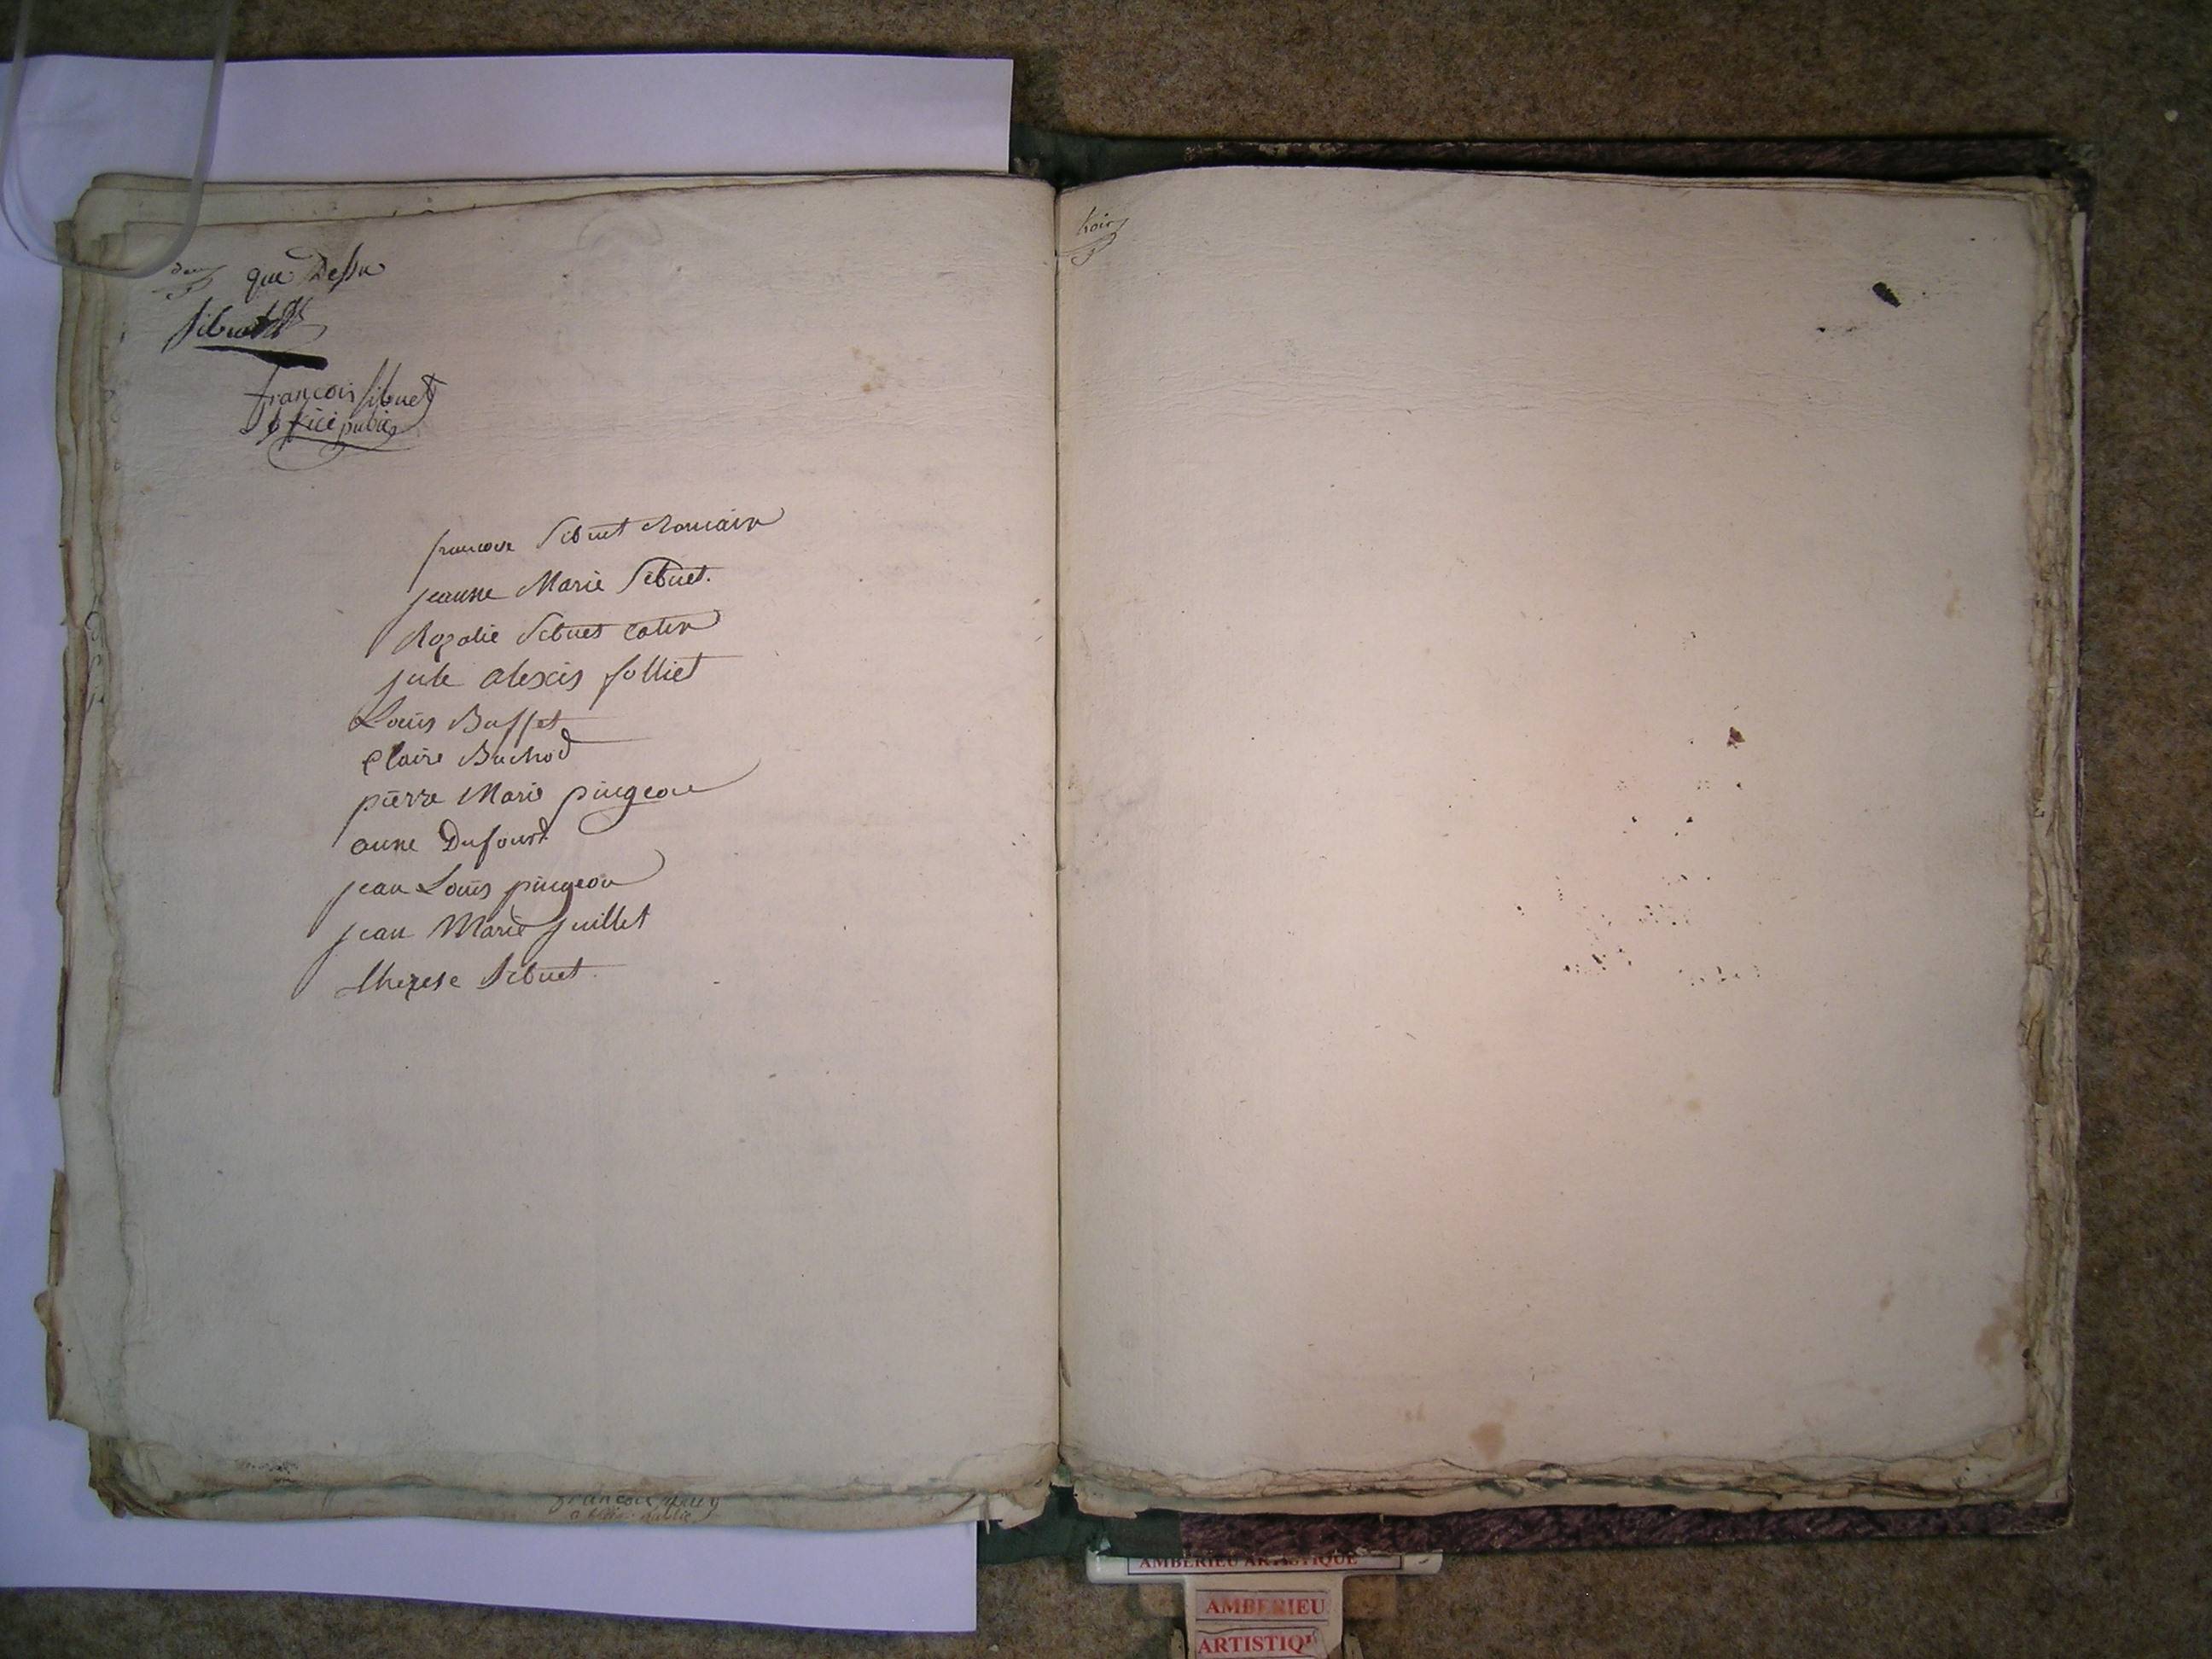 deux que Dessu
Sibuet
françois Sibuet
officié public
francoise Sibuet Romain
jeanne Marie Sibuet.
Rozalie Sibuet Cotin
jule alexis folliet
Louis Buffet
Claire Buchod
pierre Marie pingeon
anne Dufourd
jean Louis pingeon
jean Marie juillet
therese Sibuet.
troix
françois
public
AMBERIEU ARTISTIQUE
AMBERIEU
ARTISTIQU